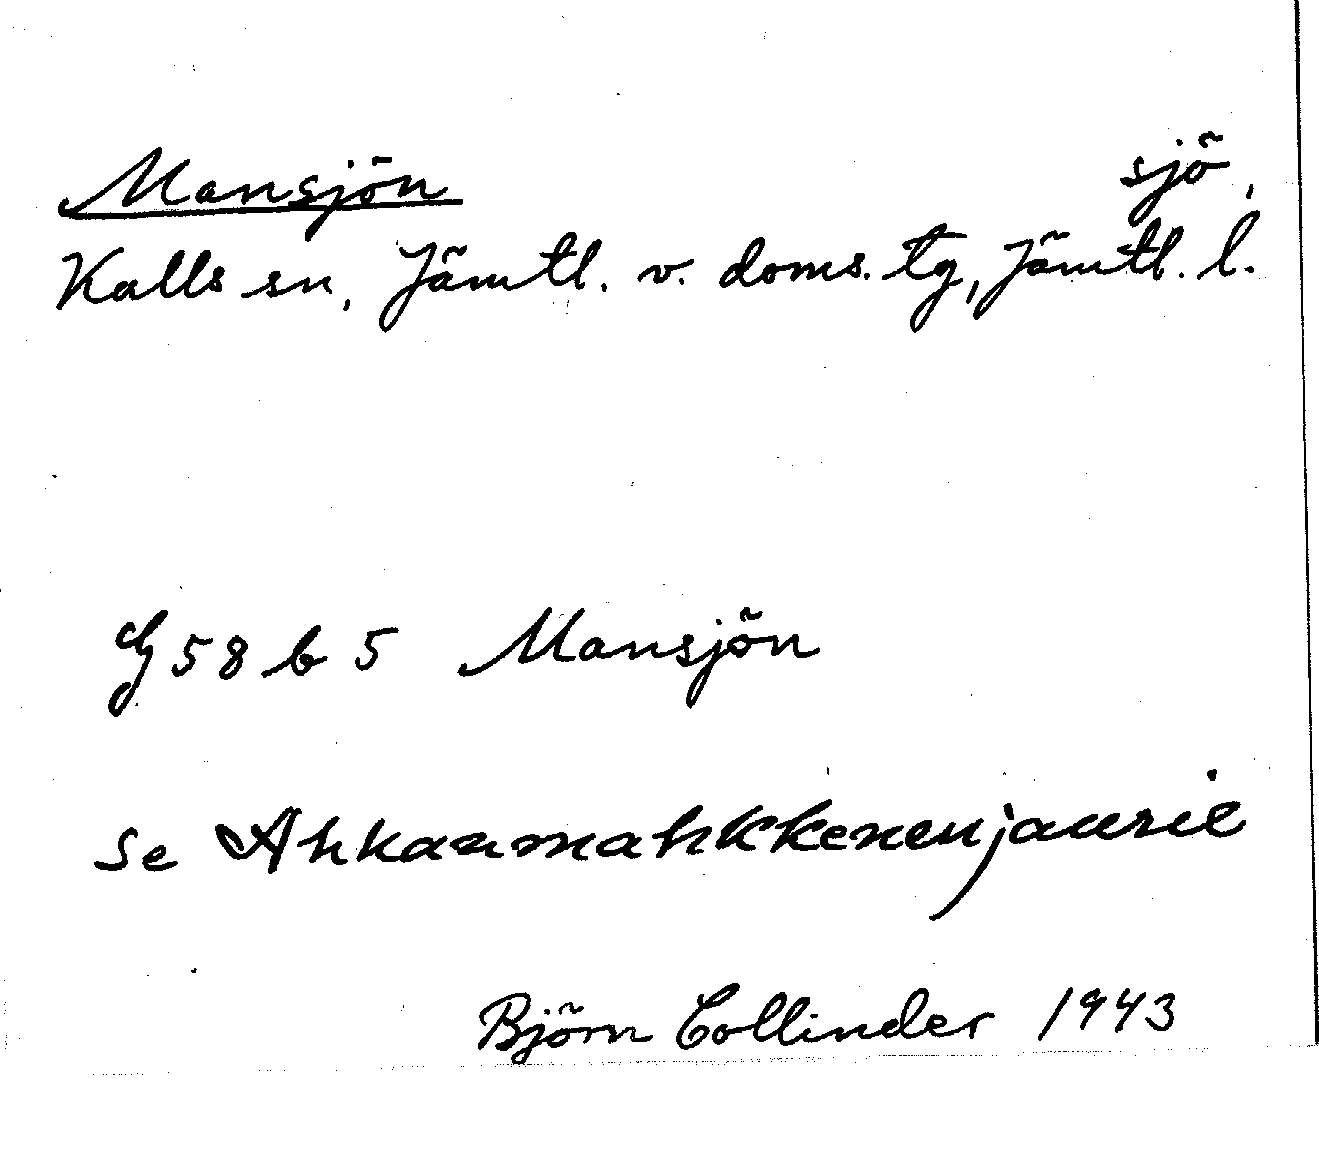 Mansjön sjö,
Kalls sn, Jämtl. v. doms. tg, Jämtl. l.
G 58 b 5 Mansjön
se Ahkanmahkkenenjaurie
Björn Collinder 1943